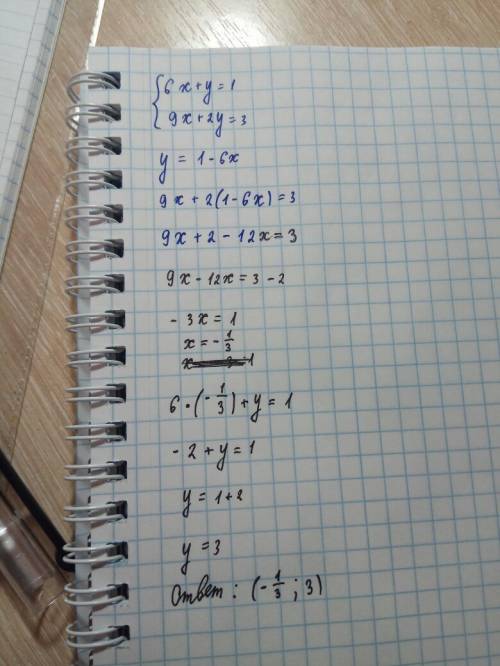 {6x+y=1
9x+2y=3
y = 1-6x
9x+2(1-6x)=3
9x+2-12x=3
9x-12x=3-2
-3x=1
x=-1/3
6·(-1/3)+y=1
-2+y=1
y=1+2
y=3
Ответ: (-1/3;3)